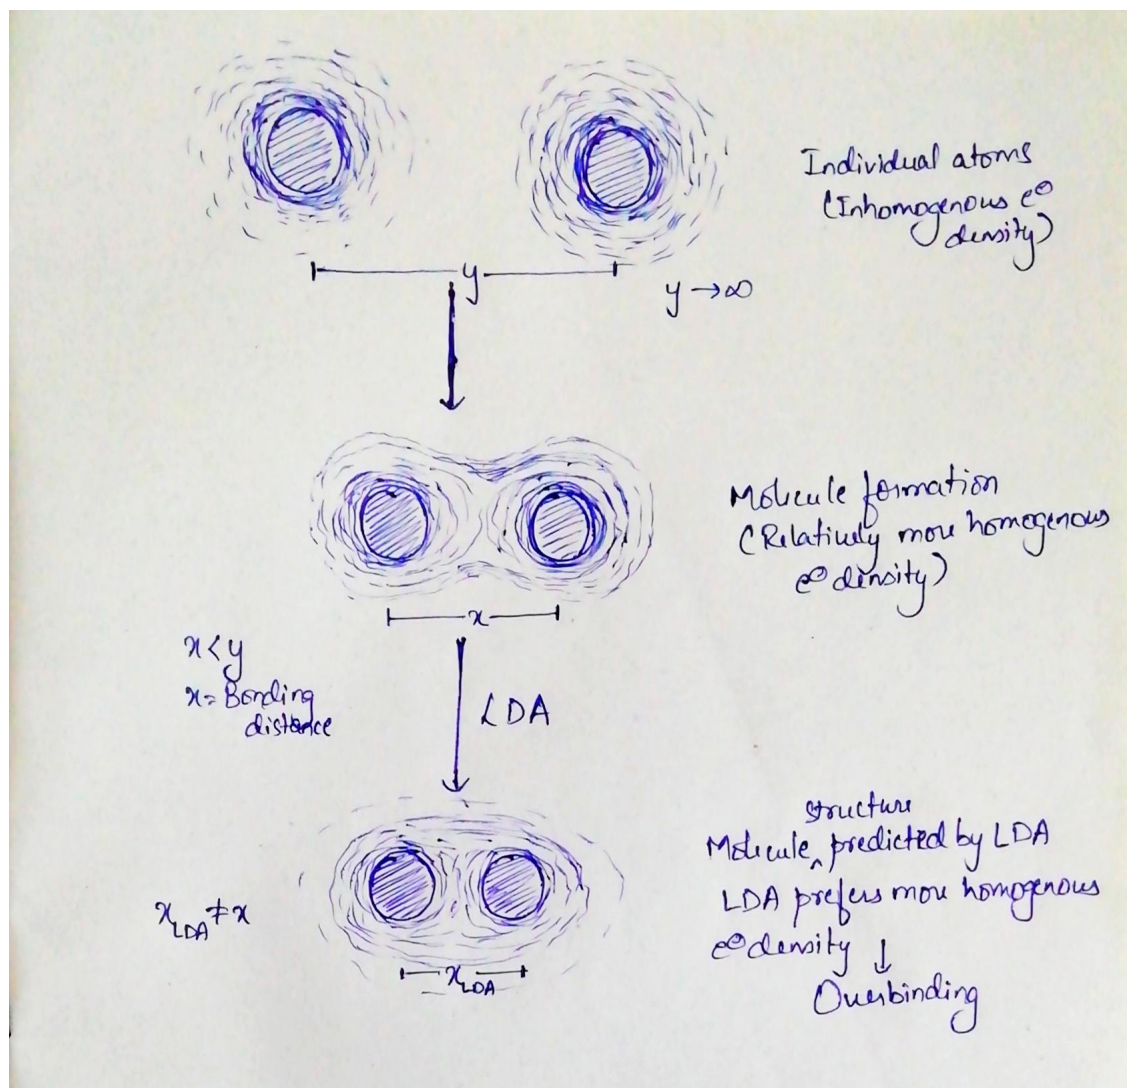 Individual atoms
(Inhomogenous e⊖
density)
y
y → ∞
Molecule formation
(Relatively more homogenous
e⊖ density)
x
x < y
x = Bonding
distance
LDA
structure
Molecule ‸ predicted by LDA
LDA prefers more homogenous
e⊖ density ↓
Overbinding
x_LDA ≠ x
x_LDA